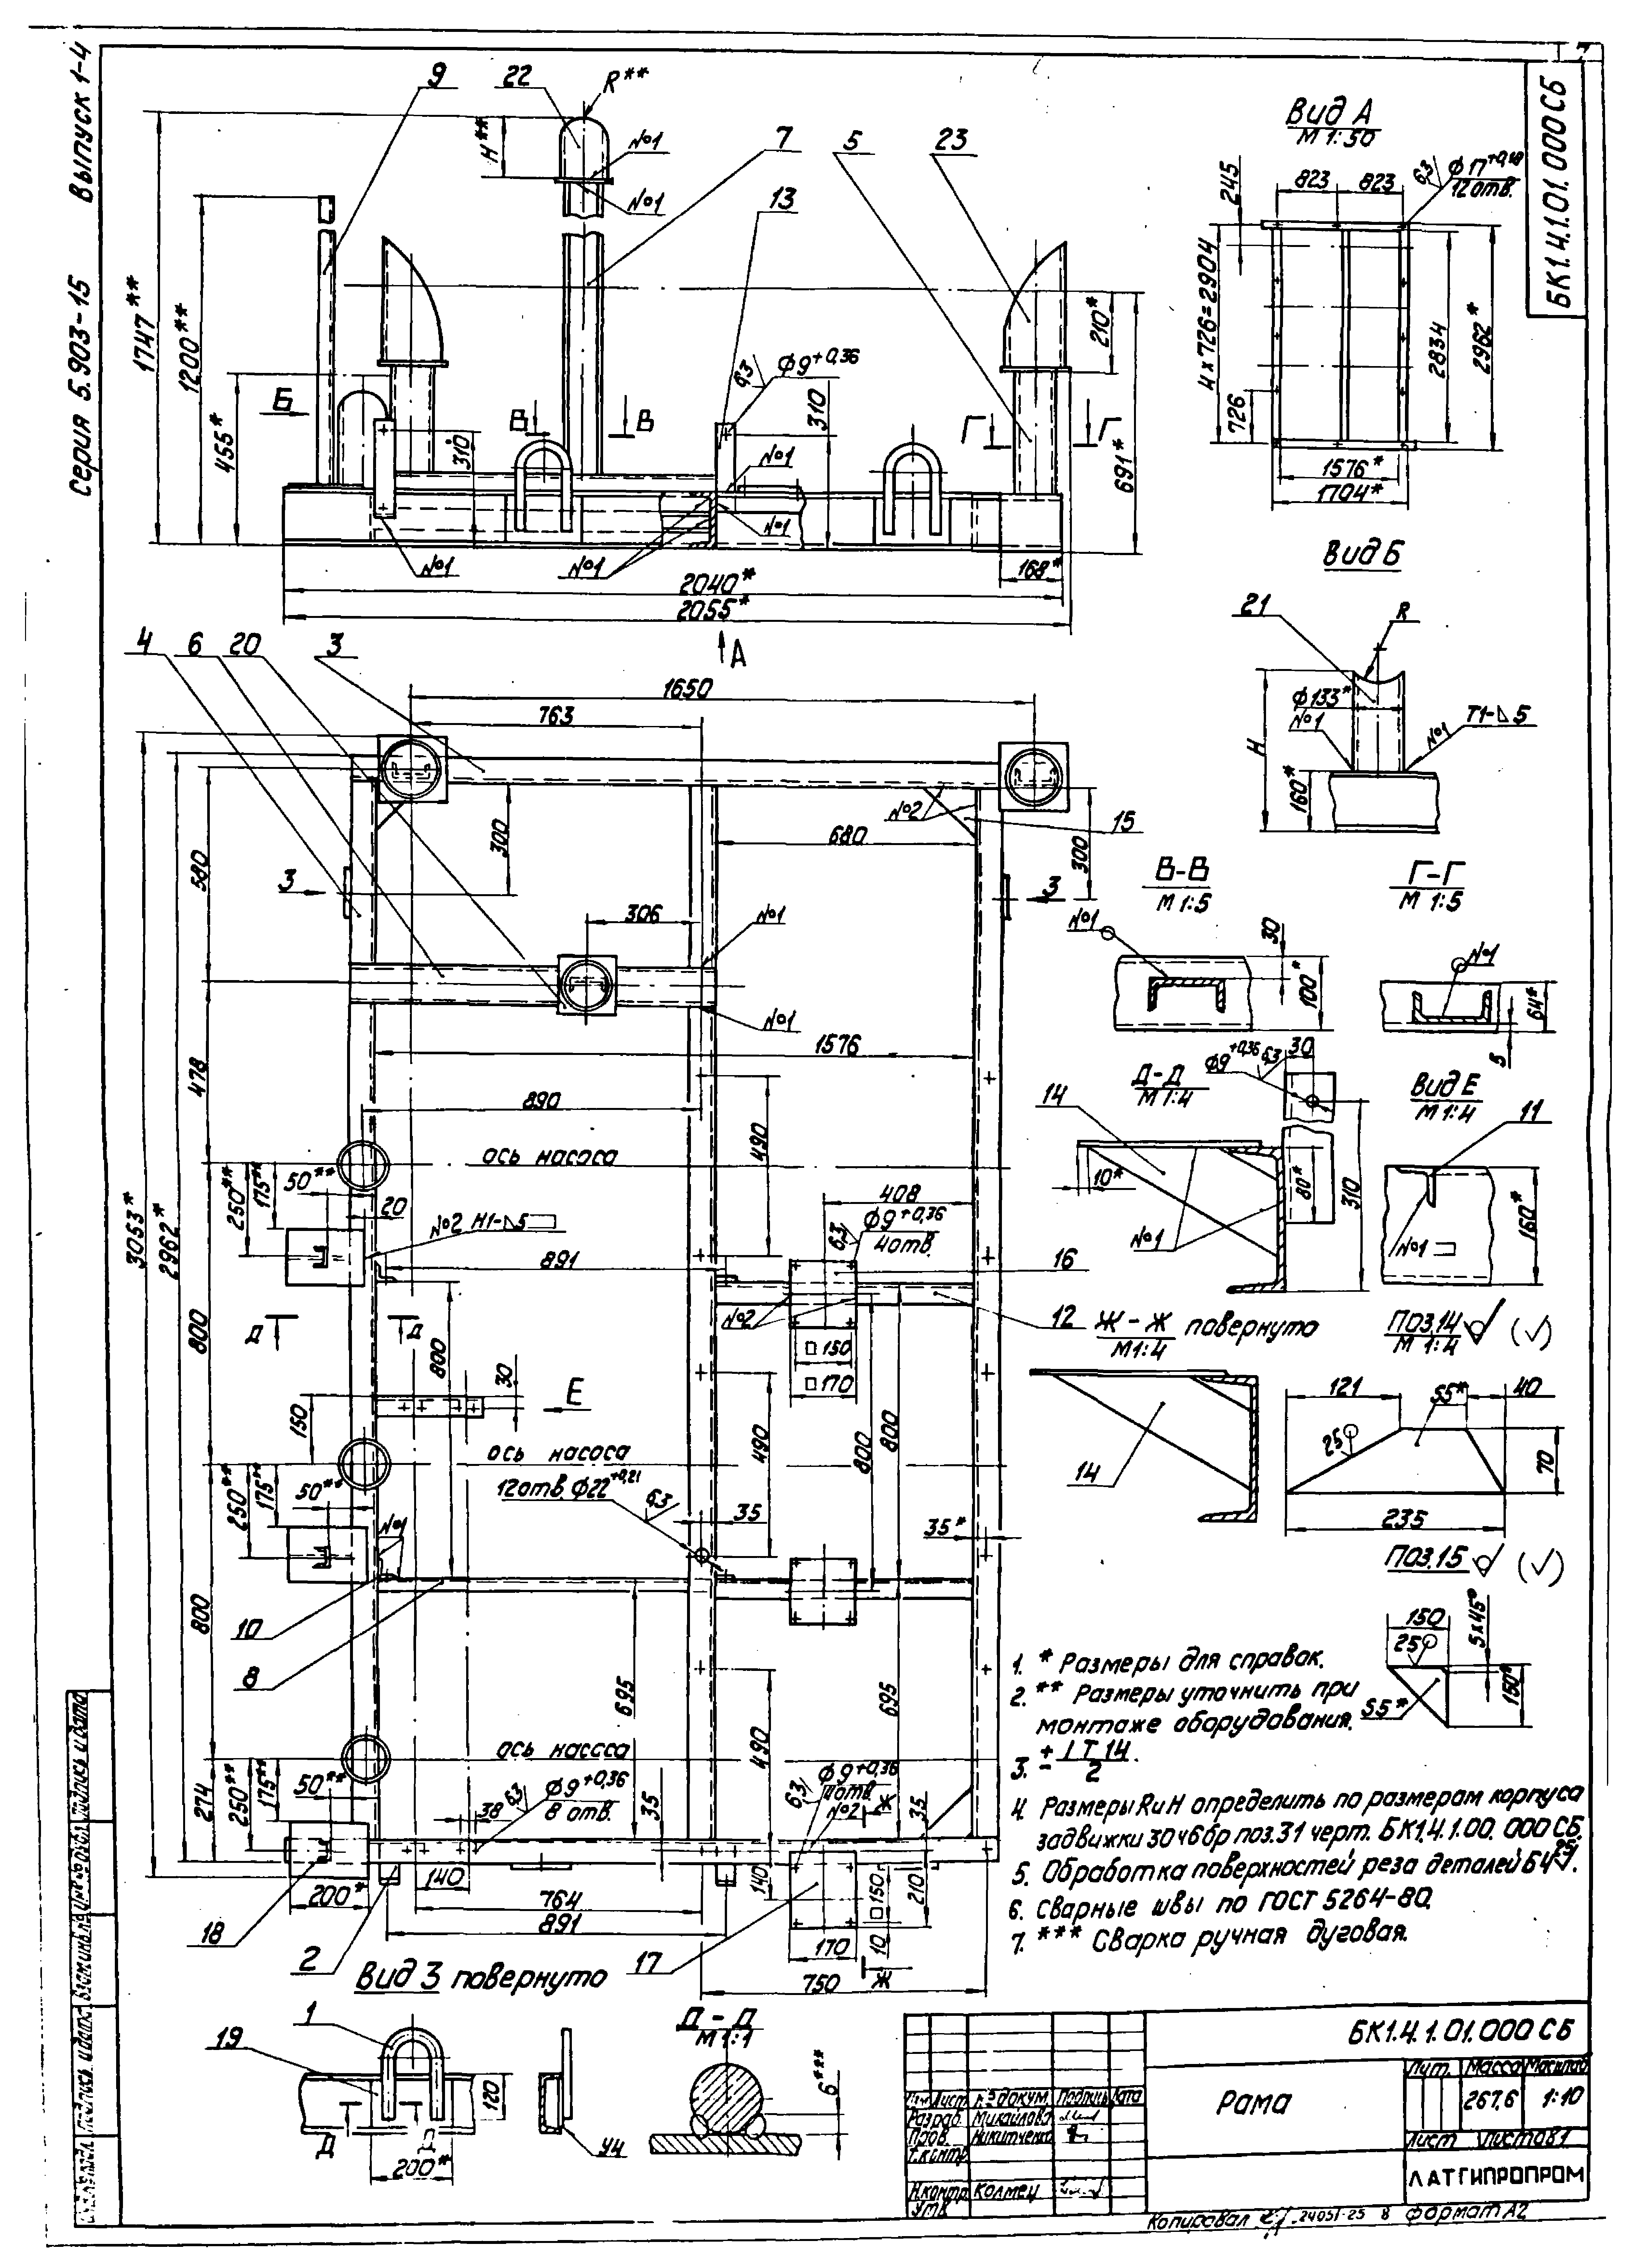 Серия 5.903-15 Выпуск 1-4
БК1.4.1.01.000 СБ
7
9
22
R**
H**
№1
№1
7
5
23
13
1747**
1200**
455*
Б
310
В
В
6,3
Ф9+0,36
310
Г
Г
210*
691*
№1
№1
№1
№1
168*
2040*
2055*
А
Вид А
М 1:50
245
823
823
6,3
Ф17+0,18
12 отв.
4х726=2904
726
2834
2962*
1576*
1704*
Вид Б
21
R
Ф133*
№1
№1
Т1-⊿5
H
160*
4
6
20
3
1650
763
3053*
2962*
580
300
№2
15
680
300
З
З
306
№1
№1
478
1576
890
ось насоса
490
50**
175**
250**
20
№2 Н1-⊿5
891
408
6,3
Ф9+0,36
4 отв.
16
12
№2
□150
□170
800
Д
Д
800
30
Е
150
ось насоса
490
800
800
12 отв. Ф22+0,21
6,3
50**
175**
250**
№1
35
35*
10
8
800
695
695
490
ось насоса
274
50**
175**
250**
38
6,3
Ф9+0,36
8 отв.
35
6,3
Ф9+0,36
4 отв.
№2
Ж
35
140
140
□150
210
10
200*
764
891
170
750
Ж
18
2
17
В-В
М 1:5
№1
30
100*
Г-Г
М 1:5
№1
64*
5
Д-Д
М 1:4
14
Ф9+0,36
6,3
30
10*
80*
310
№1
Вид Е
М 1:4
11
№1
160*
Ж-Ж повернуто
М 1:4
14
Поз.14
М 1:4
(✓)
121
S5*
40
25
70
235
Поз.15
(✓)
150
5х45°
25
150*
S5*
1. * Размеры для справок.
2. ** Размеры уточнить при
монтаже оборудования.
3. ± IT14/2.
4. Размеры R и H определить по размерам корпуса
задвижки 30ч6бр поз.31 черт. БК1.4.1.00.000 СБ.
5. Обработка поверхностей реза деталей БЧ 25.
6. Сварные швы по ГОСТ 5264-80.
7. *** Сварка ручная дуговая.
Вид З повернуто
1
19
120
Д
Д
200*
У4
Д-Д
М 1:1
6***
БК1.4.1.01.000 СБ
Рама
Лит. Масса Масштаб
267,6 1:10
Лист Листов 1
ЛАТГИПРОПРОМ
Изм Лист № докум. Подпись Дата
Разраб. Михайлова
Пров. Никитченко
Т.контр.
Н.контр. Колмец
Утв.
Копировал 24051-25 8 Формат А2